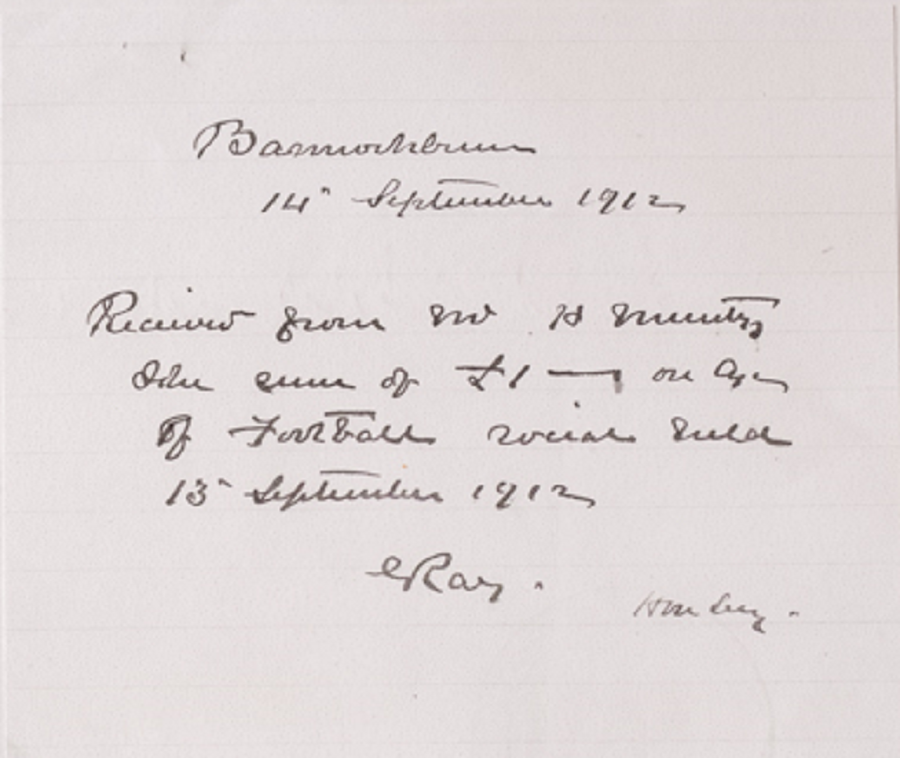 Bannockburn
14" September 1912
Received from Mr H Muntz
the sum of £1 — on a/c
of Football social held
13" September 1912
Ray.
Hon Secy.